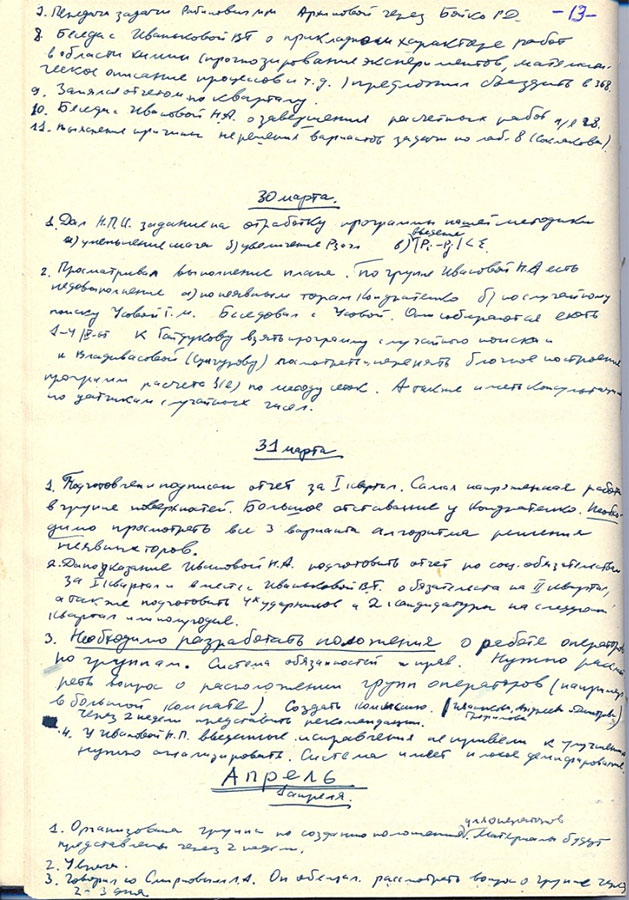 -13-
7. Передача задачи через Бойко Р.Д.
8. Беседа с Иваньковой В.Т. о прикладном характере работ
в области химии (прогнозирование экспериментов, математи-
ческое описание процессов и т.д.) предложил съездить в 368.
9. Занялся отчетом по кварталу.
10. Беседа с Ивасовой Н.А. о завершении расчетных работ п/я 28.
11. Выяснение причины не решения вариантов задачи по лаб. 8
30 марта.
1. Дал Н.П.И. задание на отработку программы нашей методики
введение
а) уменьшение шага б) увеличение в) |Pi-Pj|<ε.
2. Просматривал выполнение плана. По группе Ивасовой Н.А есть
недовыполнение а) по неявным торам Кондратенко б) по случайному
поиску Усовой Г.М. Беседовал с Усовой. Они собираются ехать
к Гайдукову взять программу случайного поиска и
к посмотреть и перенять блочное построение
программ расчета по методу А также иметь консультации
по датчикам случайных чисел.
31 марта
1. Подготовлен и подписан отчет за I квартал. Самая напряженная работа
в группе поверхностей. Большое отставание у Кондратенко. Необхо-
димо просмотреть все 3 варианта алгоритма решения
неявных торов.
2. Дано указание Ивасовой Н.А. подготовить отчет по соц. обязательствам
за I квартал и вместе с Иваньковой В.Т. обязательства на II квартал,
а также подготовить 4х ударников и 2 кандидатуры на следующий
квартал и полугодие.
3. Необходимо разработать положения о работе операторов
по группам. Система обязанностей и прав. Нужно рассмот-
реть вопрос о расположении групп операторов (например
в большой комнате). Создать комиссию.
Через 2 недели представить рекомендации.
4. У Ивасовой Н.П. введенные исправления не привели к улучшению
нужно анализировать. Система имеет плохое демпфирование.
Апрель
1 апреля.
для операторов
1. Организована группа по созданию положений. Материалы будут
представлены через 2 недели.
2. У врача.
3. Говорил со Смирновым Л.А. Он обещал рассмотреть вопрос о группе через
2-3 дня